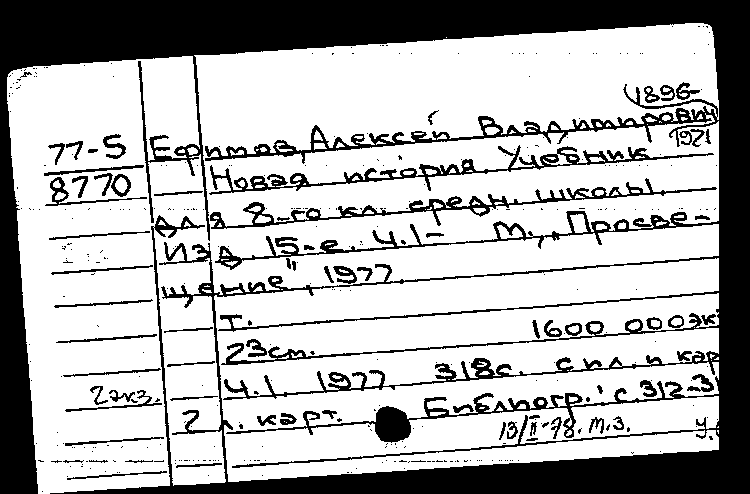 1896-
77-5 Ефимов, Алексей Владимирович
1971
8770 Новая история. Учебник
для 8-го кл. средн. школы.
Изд. 15-е. Ч.1- М., „Просве-
щение", 1977.
т.
23см. 1600 000эк
Ч.1. 1977. 318с. с ил. и кар
2экз.
2 л. карт. Библиогр.: с.312-31
13/II-78. т.з.